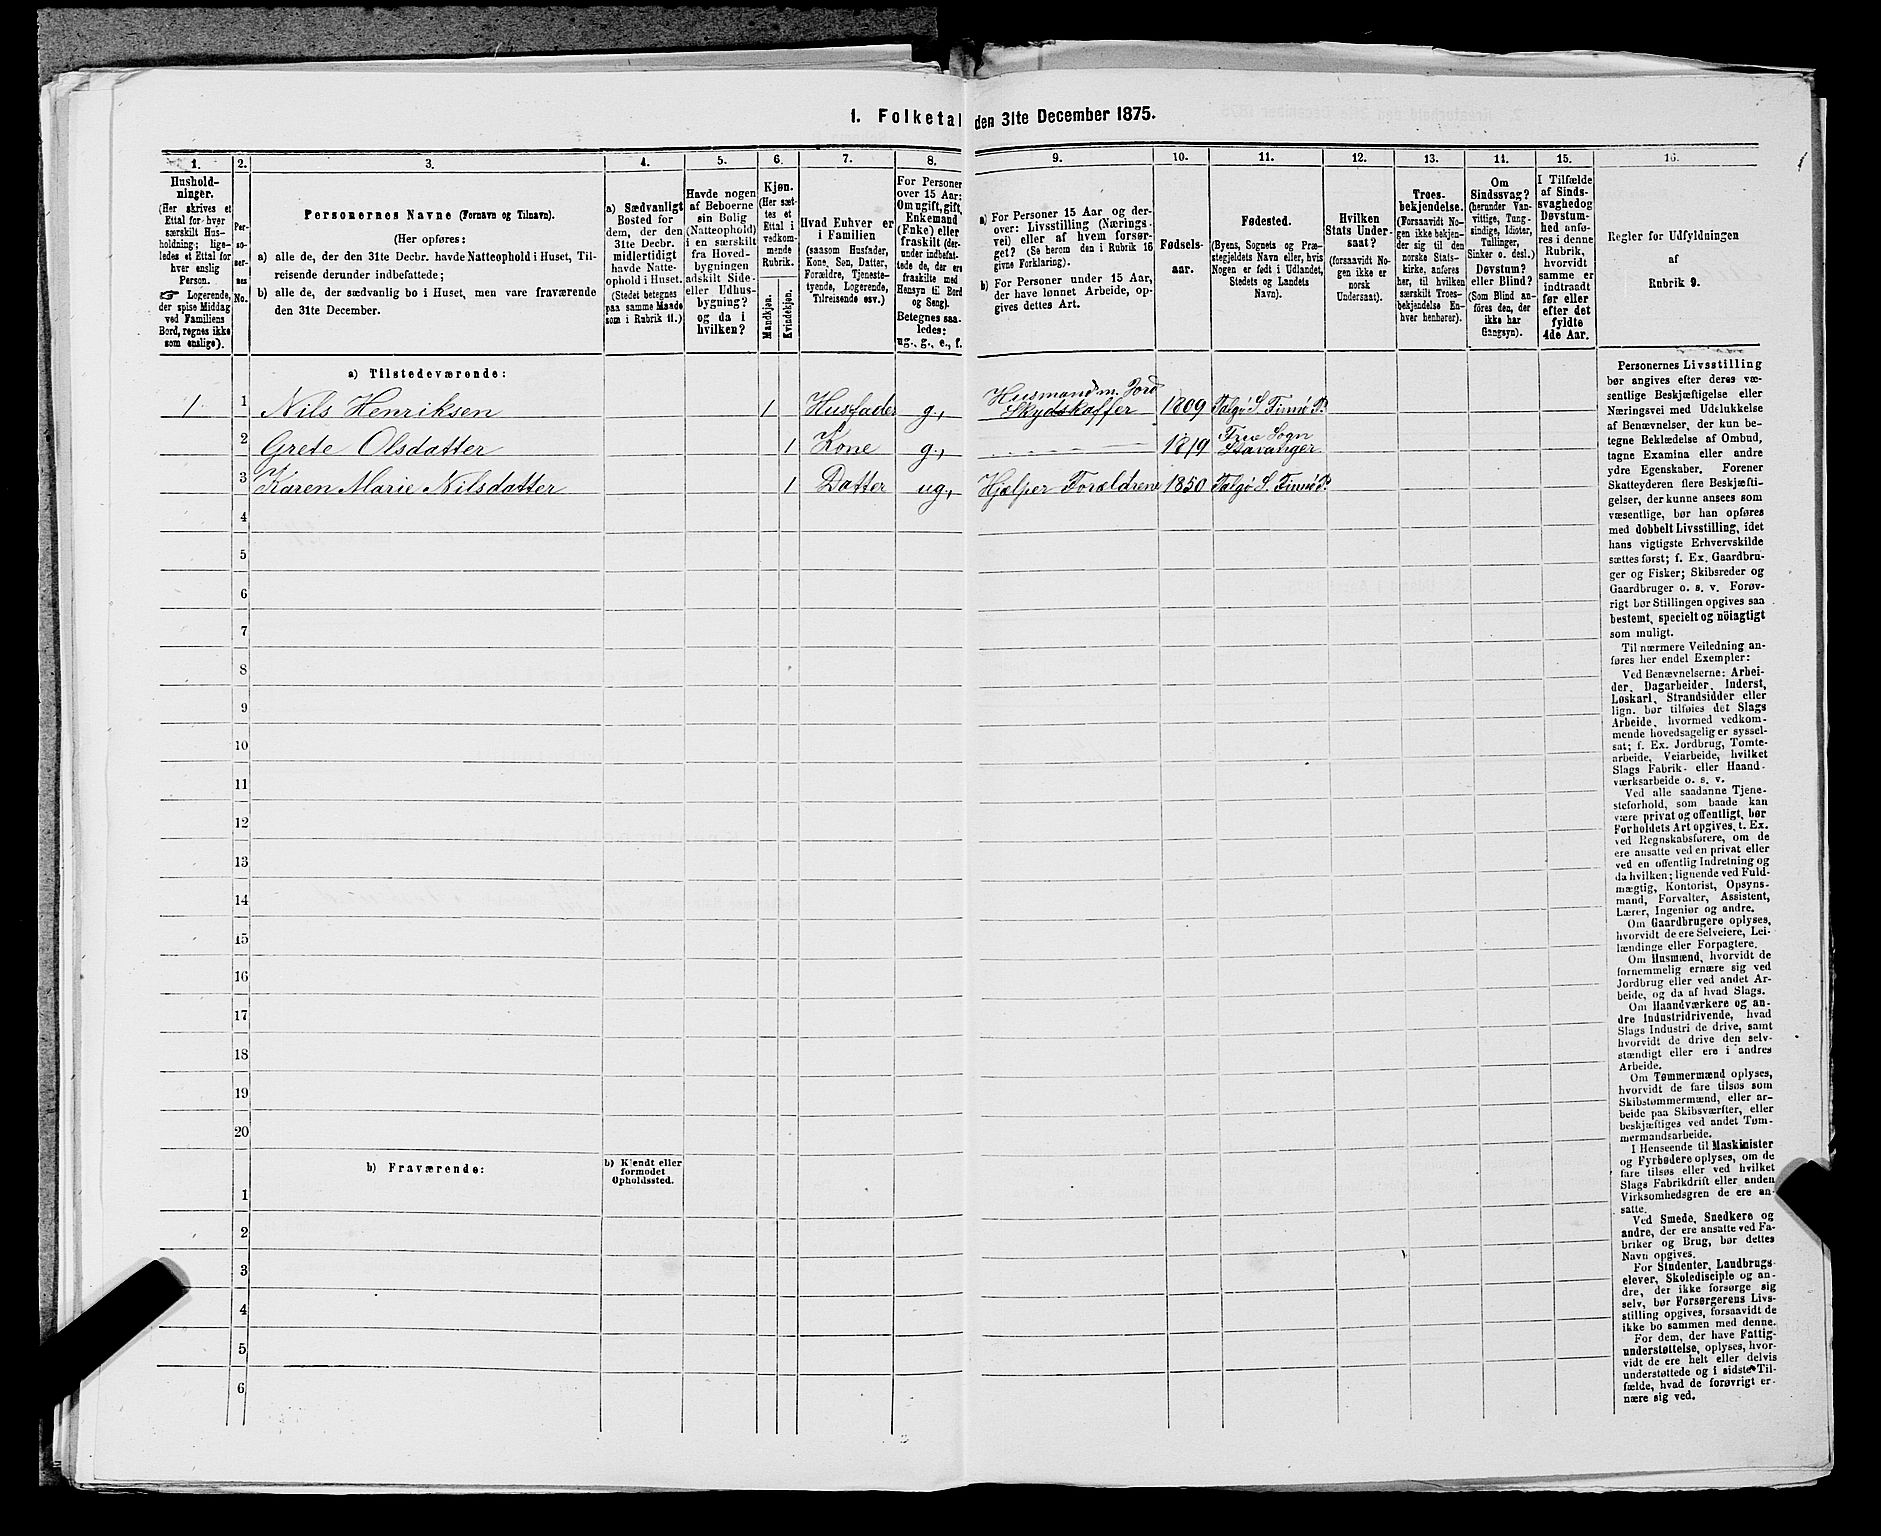 1. Folketal den 31te December 1875.
1. 2. 3. 4. 5. 6. 7. 8. 9. 10. 11. 12. 13. 14. 15. 16.
Hushold-
ninger.
(Her skrives et
Ettal for hver
særskilt Hus-
holdning; lige-
ledes et Ettal for
hver enslig
Person.
☞ Logerende,
der spise Middag
ved Familiens
Bord, regnes ikke
som enslige).
Per-
so-
ner-
nes
No.
Personernes Navne (Fornavn og Tilnavn).
(Her opføres:
a) alle de, der den 31te Decbr. havde Natteophold i Huset, Til-
reisende derunder indbefattede;
b) alle de, der sædvanlig bo i Huset, men vare fraværende
den 31te December.
a) Sædvanligt
Bosted for
dem, der den
31te Decbr.
midlertidigt
havde Natte-
ophold i Huset.
(Stedet betegnes
paa samme Maade
som i Rubrik 11.)
Havde nogen
af Beboerne
sin Bolig
(Natteophold)
i en særskilt
fra Hoved-
bygningen
adskilt Side-
eller Udhus-
bygning?
og da i
hvilken?
Kjøn.
(Her sæt-
tes et
Ettal i
vedkom-
mende
Rubrik.
Mandkjøn.
Kvindekjøn.
Hvad Enhver er
i Familien
(saasom Husfader,
Kone, Søn, Datter,
Forældre, Tjeneste-
tyende, Logerende,
Tilreisende osv.)
For Personer
over 15 Aar:
Om ugift, gift,
Enkemand
(Enke) eller
fraskilt (der-
under indbefat-
tede de, der ere
fraskilte med
Hensyn til Bord
og Seng).
Betegnes saa-
ledes:
ug., g., e., f.
a) For Personer 15 Aar og der-
over: Livsstilling (Nærings-
vei) eller af hvem forsør-
get? (Se herom den i Rubrik 16
givne Forklaring).
b) For Personer under 15 Aar,
der have lønnet Arbeide, op-
gives dettes Art.
Fødsels-
aar.
Fødested.
(Byens, Sognets og Præ-
stegjeldets Navn eller, hvis
Nogen er født i Udlandet,
Stedets og Landets
Navn).
Hvilken
Stats Under-
saat?
(forsaavidt No-
gen ikke er
norsk
Undersaat).
Troes-
bekjendelse.
(Forsaavidt No-
gen ikke bekjen-
der sig til den
norske Stats-
kirke, anføres
her, til hvilken
særskilt Troes-
bekjendelse En-
hver henhører).
Om
Sindssvag?
(herunder Van-
vittige, Tung-
sindige, Idioter,
Tullinger,
Sinker o. desl.)
Døvstum?
eller Blind?
(Som Blind an-
føres den, der
ikke har
Gangsyn).
I Tilfælde
af Sinds-
svaghed og
Døvstum-
hed anfø-
res i denne
Rubrik,
hvorvidt
samme er
indtraadt
før eller
efter det
fyldte
4de Aar.
Regler for Udfyldningen
af
Rubrik 9.
a) Tilstedeværende:
1 1 Nils Henriksen 1 Husfader g., Husmand m. Jord
Skydskaffer 1809 Talgø S. Finnø P.
2 Grete Olsdatter 1 Kone g., 1819 Frue Sogn
Stavanger
3 Karen Marie Nilsdatter 1 Datter ug, Hjælper Forældrene 1850 Talgø S. Finnø P.
4
5
6
7
8
9
10
11
12
13
14
15
16
17
18
19
20
b) Fraværende:
b) Kjendt eller
formodet
Opholdssted.
1
2
3
4
5
6
Personernes Livsstilling
bør angives efter deres væ-
sentlige Beskjæftigelse eller
Næringsvei med Udelukkelse
af Benævnelser, der kun be-
tegne Beklædelse af Ombud,
tagne Examina eller andre
ydre Egenskaber. Forener
Skatteyderen flere Beskjæfti-
gelser, der kunne ansees som
væsentlige, bør han opføres
med dobbelt Livsstilling, idet
hans vigtigste Erhvervskilde
sættes først; f. Ex. Gaardbru-
ger og Fisker; Skibsreder og
Gaardbruger o. s. v. Forøv-
rigt bør Stillingen opgives saa
bestemt, specielt og nöiagtigt
som muligt.
Til nærmere Veiledning an-
føres her endel Exempler:
Ved Benævnelserne: Arbei-
der, Dagarbeider, Inderst,
Løskarl, Strandsidder eller
lign. bør tilføies det Slags
Arbeide, hvormed vedkom-
mende hovedsagelig er syssel-
sat; f. Ex. Jordbrug, Tomte-
arbeide, Veiarbeide, hvilket
Slags Fabrik- eller Haand-
værksarbeide o. s. v.
Ved alle saadanne Tjene-
steforhold, som baade kan
være privat og offentligt, bør
Forholdets Art opgives, t. Ex.
ved Regnskabsførere, om de
ere ansatte ved en privat eller
ved en offentlig Indretning og
da hvilken; lignende ved Fuld-
mægtig, Kontorist, Opsyns-
mand, Forvalter, Assistent,
Lærer, Ingeniør og andre.
Om Gaardbrugere oplyses,
hvorvidt de ere Selveiere, Lei-
lændinge eller Forpagtere.
Om Husmænd, hvorvidt de
fornemmelig ernære sig ved
Jordbrug eller ved andet Ar-
beide, og da af hvad Slags.
Om Haandværkere og an-
dre Industridrivende, hvad
Slags Industri de drive, samt
hvorvidt de drive den selv-
stændigt eller ere i andres
Arbeide.
Om Tømmermænd oplyses,
hvorvidt de fare tilsøs som
Skibstømmermænd, eller ar-
beide paa Skibsværfter, eller
beskjæftiges ved andet Tøm-
mermandsarbeide.
I Henseende til Maskinister
og Fyrbødere oplyses, om de
fare tilsøs eller ved hvilket
Slags Fabrikdrift eller anden
Virksomhedsgren de ere an-
satte.
Ved Smede, Snedkere og
andre, der ere ansatte ved Fa-
briker og Brug, bør dettes
Navn opgives.
For Studenter, Landbrugs-
elever, Skoledisciple og an-
dre, der ikke forsørge sig
selv, bør Forsørgerens Livs-
stilling opgives, forsaavidt de
ikke bo sammen med denne.
For dem, der have Fattig-
understøttelse, oplyses, hvor-
vidt de ere helt eller delvis
understøttede og i sidste Til-
fælde, hvad de forøvrigt er-
nære sig ved.